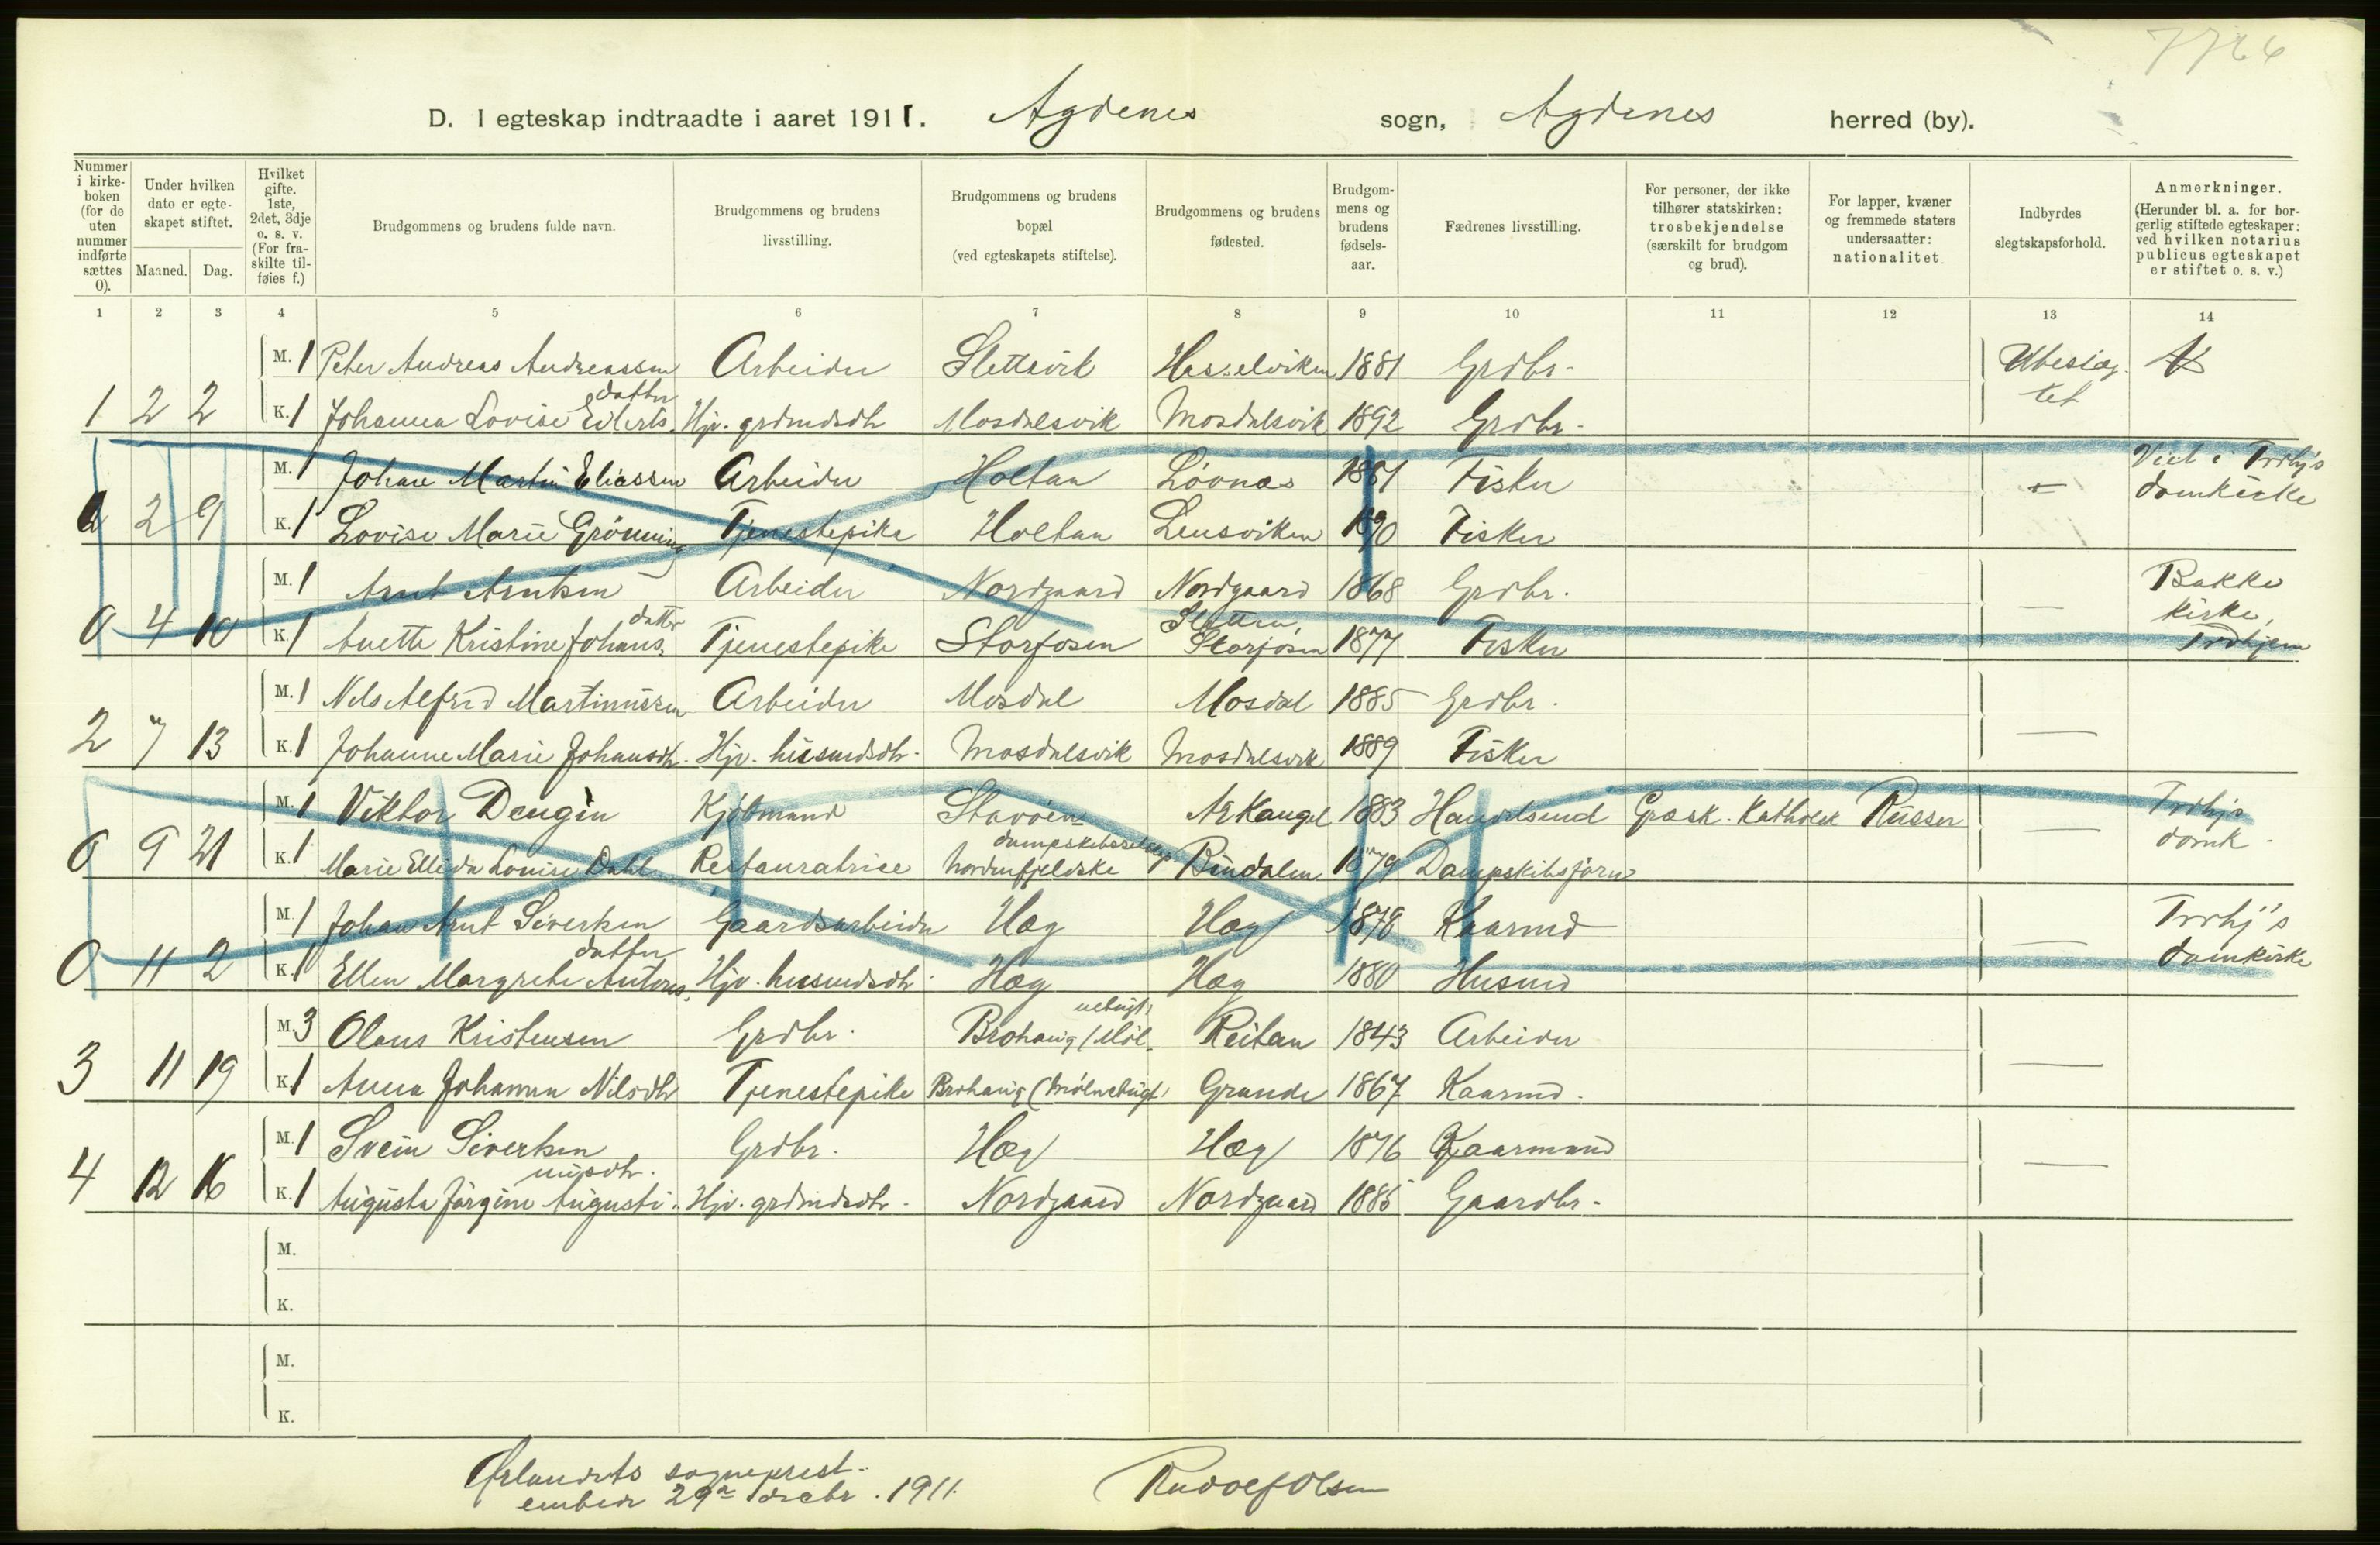 7766
D. I egteskap indtraadte i aaret 1911. Agdenes sogn, Agdenes herred (by).
Nummer i kirke-boken (for de uten nummer indførte sættes 0). Under hvilken dato er egte-skapet stiftet. Maaned. Dag. Hvilket gifte. 1ste, 2det, 3dje o. s. v. (For fra-skilte til-føies f.) Brudgommens og brudens fulde navn. Brudgommens og brudens livsstilling. Brudgommens og brudens bopæl (ved egteskapets stiftelse). Brudgommens og brudens fødested. Brudgom-mens og brudens fødsels-aar. Fædrenes livsstilling. For personer, der ikke tilhører statskirken: trosbekjendelse (særskilt for brudgom og brud). For lapper, kvæner og fremmede staters undersaatter: nationalitet. Indbyrdes slegtskapsforhold. Anmerkninger. (Herunder bl. a. for bor-gerlig stiftede egteskaper: ved hvilken notarius publicus egteskapet er stiftet o. s. v.)
1 2 3 4 5 6 7 8 9 10 11 12 13 14
M. 1 Peter Andreas Andreassen Arbeider Slettavik Hasselviken 1881 Grdbr. Ubeslæg-tet
1 2 2 K. 1 Johanna Lovise Eilerts.datter Hjv. grdmdsdtr Mosdalsvik Mosdalsvik 1892 Grdbr.
M. 1 Johan Martin Eliassen Arbeider Holtan Lövnæs 1881 Fisker Viet i Trdhj's domkirke
0 2 9 K. 1 Lovise Marie Grönning Tjenestepike Holtan Lensviken 1890 Fisker
M. 1 Arnt Arntsen Arbeider Nordgaard Nordgaard 1868 Grdbr. Bakke kirke, Trdhjem
0 4 10 K. 1 Anette Kristine Johans.datter Tjenestepike Storfosen Storfosen 1877 Fisker
M. 1 Nils Alfred Martinussen Arbeider Mosdal Mosdal 1885 Grdbr.
2 7 13 K. 1 Johanne Marie Johansdtr. Hjv. husmdsdtr. Mosdalsvik Mosdalsvik 1889 Fisker
M. 1 Viktor Dengin Kjöbmand Stavöen Arkangel 1883 Handelsmd Græsk. Katholsk Russer Trdhjs domk.
0 9 21 K. 1 Marie Elleda Louise Dahl Restauratrice Nordenfjeldske dampskibsselskap Bindalen 1879 Dampskibsförer
M. 1 Johan Arnt Sivertsen Gaardsarbeider Hæg Hæg 1878 Kaarmd Trdhj's domkirke
0 11 2 K. 1 Ellen Margrethe Antons.datter Hjv. husmdsdtr. Hæg Hæg 1880 Husmd
M. 3 Olaus Kristensen Grdbr. Brohaug (Möl-nebugt) Reitan 1843 Arbeider
3 11 19 K. 1 Anna Johanna Nilsdtr Tjenestepike Brohaug (Mölnebugt) Grande 1867 Kaarmd.
M. 1 Svein Sivertsen Grdbr. Hæg Hæg 1876 Kaarmand
4 12 16 K. 1 Augusta Jörgine Augusti.nusdtr. Hjv. grdmdsdtr. Nordgaard Nordgaard 1885 Gaardbr.
M.
K.
M.
K.
Ørlandets sogneprest-
embede 29de decbr. 1911. Rudolf Olsen